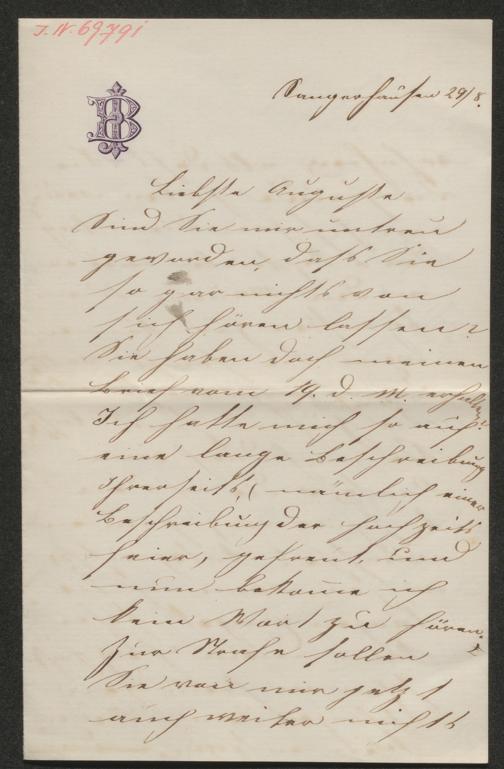 J. N. 69791
B
Sangerhausen 29/8.
Liebste Auguste
Sind Sie mir untreu
geworden, daß Sie
so gar nichts von
sich hören lassen?
Sie haben doch meinen
Brief vom 19. d. M. erhalten?
Ich hatte mich so auf
eine lange Beschreibung
Ihrerseits, (nämlich einer
Beschreibung der Hochzeits
feier, gefreut, und
nun bekome ich
kein Wort zu hören.
Zur Strafe sollen
Sie von mir jetzt
auch weiter nichts